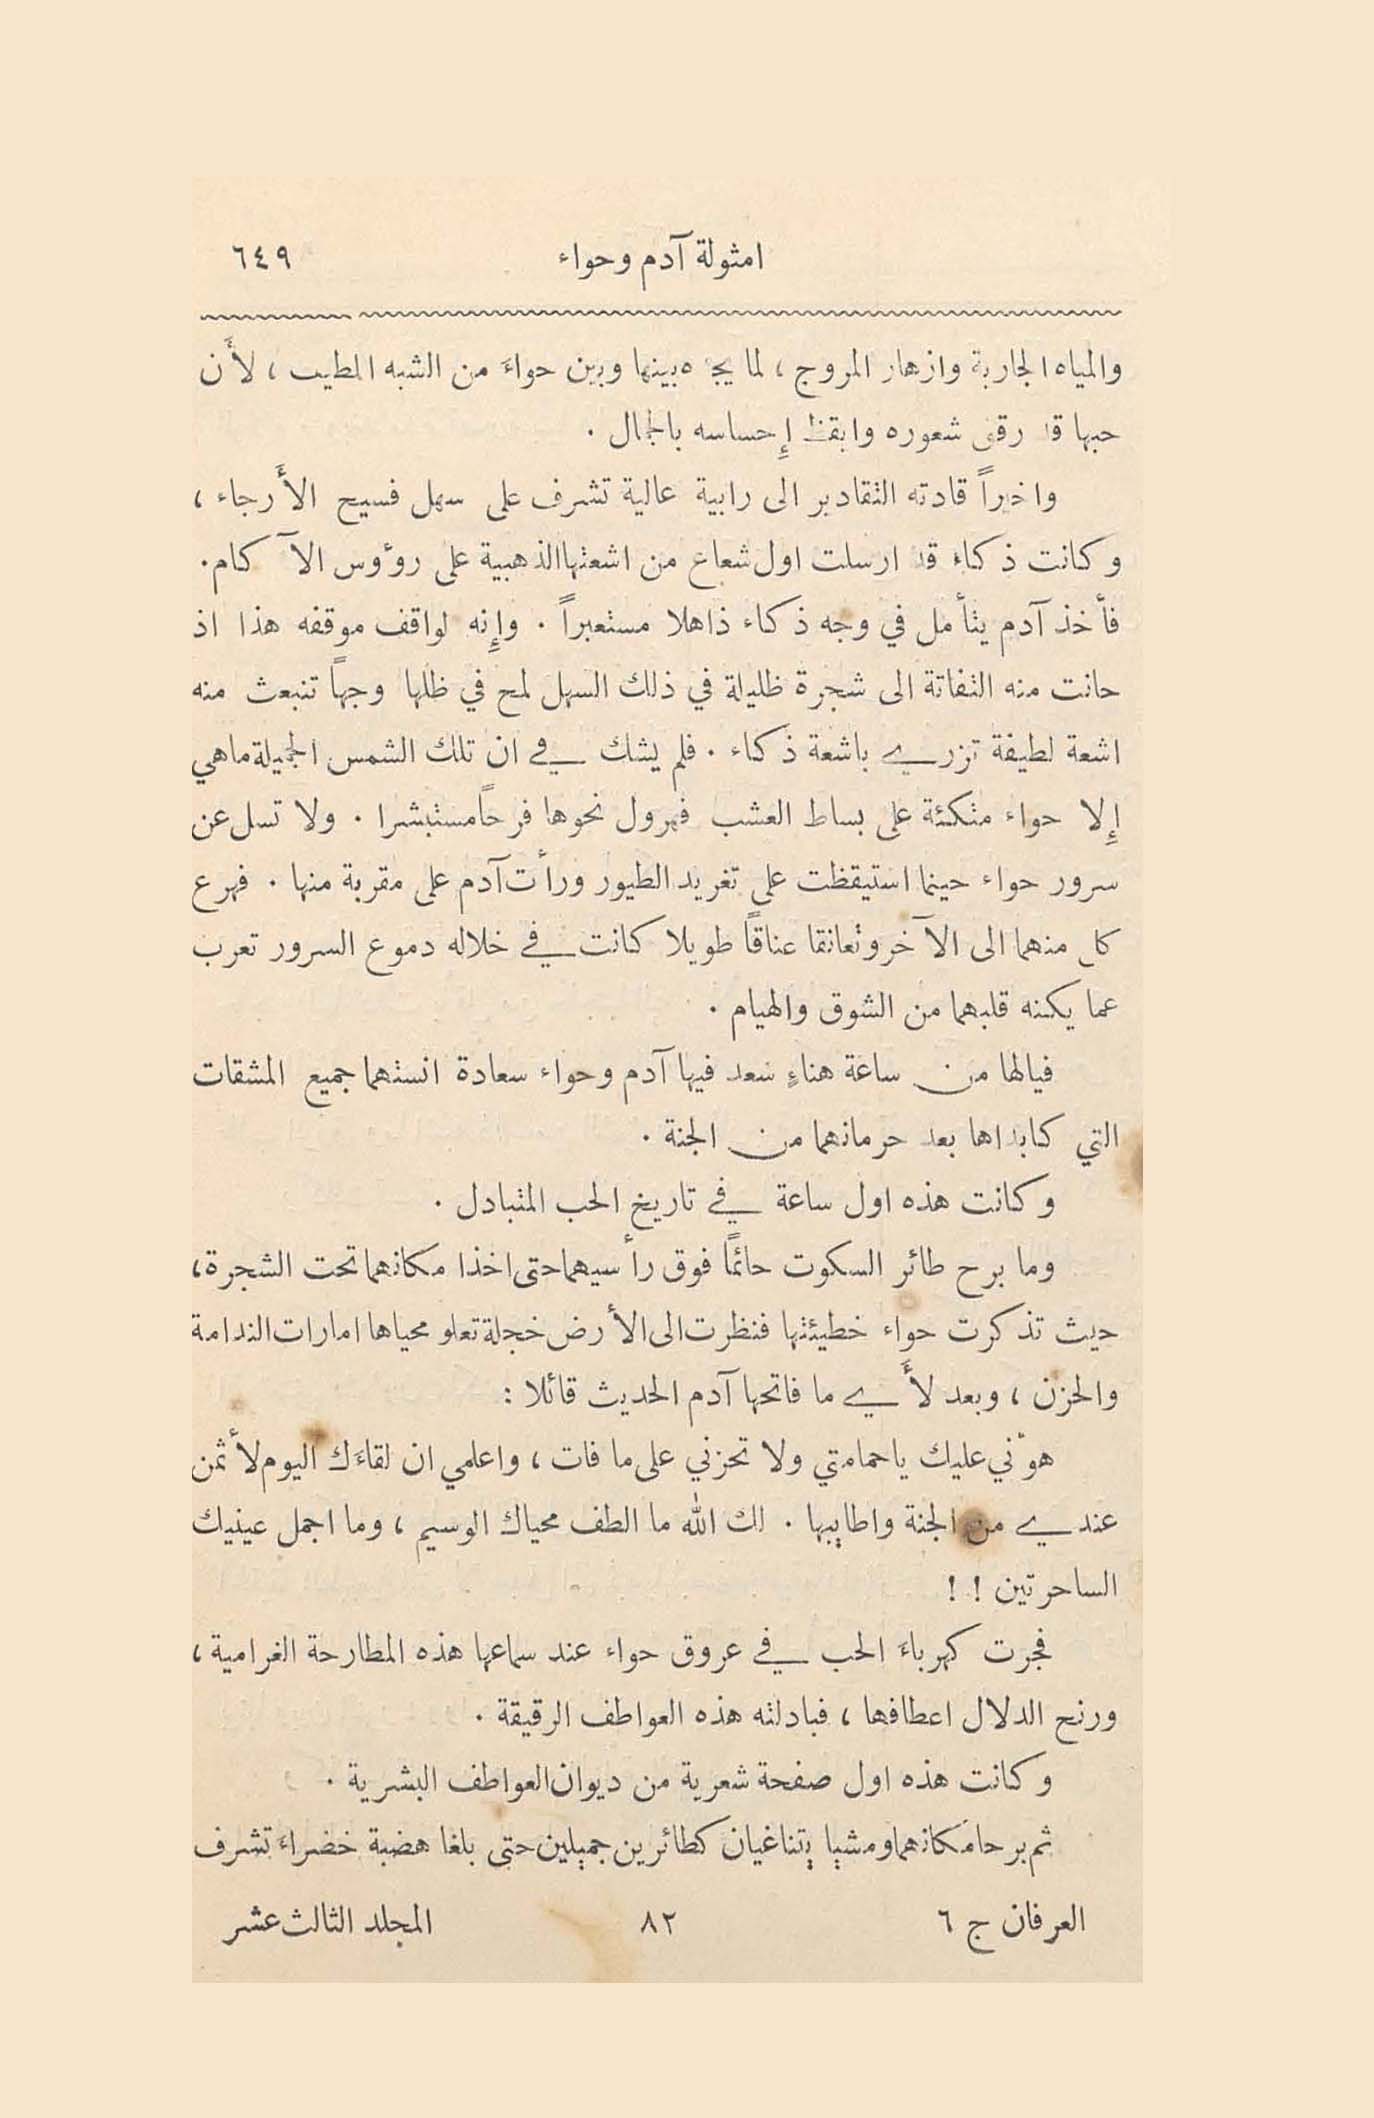 امثولة آدم وحواء ٦٤٩
والمياه الجارية وازهار المروج ، لما بينها وبين حواءَ من الشبه اللطيف ، لأَن
حبها قد رقق شعوره وايقظ إِحساسه بالجمال .
واخيراً قادته التقادير الى رابية عالية تشرف على سهل فسيح الأَرجاء ،
وكانت ذكاء قد ارسلت اول شعاع من اشعتها الذهبية على رؤوس الآكام.
فأَخذ آدم يتأمل في وجه ذكاء ذاهلا مستعبراً . وإِنه لواقف موقفه هذا اذ
حانت منه التفاتة الى شجرة ظليلة في ذلك السهل لمح في ظلها وجهاً تنبعث منه
اشعة لطيفة تزري باشعة ذكاء . فلم يشك في ان تلك الشمس الجميلة ماهي
إِلا حواء متكئة على بساط العشب فهرول نحوها فرحاً مستبشرا . ولا تسل عن
سرور حواء حينما استيقظت على تغريد الطيور ورأت آدم على مقربة منها . فهرع
كل منهما الى الآخر وتعانقا عناقاً طويلا كانت في خلاله دموع السرور تعرب
عما يكنه قلبهما من الشوق والهيام .
فيالها من ساعة هناءٍ سعد فيها آدم وحواء سعادة انستهما جميع المشقات
التي كابداها بعد حرمانهما من الجنة .
وكانت هذه اول ساعة في تاريخ الحب المتبادل .
وما برح طائر السكوت حائمًا فوق رأسيهما حتى اخذا مكانهما تحت الشجرة،
حيث تذكرت حواء خطيئتها فنظرت الى الأرض خجلة تعلو محياها امارات الندامة
والحزن ، وبعد لأَي ما فاتحها آدم الحديث قائلا :
هوّني عليك ياحمامتي ولا تحزني على ما فات ، واعلمي ان لقاءَك اليوم لأثمن
عندي من الجنة واطايبها . لك الله ما الطف محياك الوسيم ، وما اجمل عينيك
الساحرتين ! !
فجرت كهرباءَ الحب في عروق حواء عند سماعها هذه المطارحة الغرامية ،
ورنح الدلال اعطافها ، فبادلته هذه العواطف الرقيقة .
وكانت هذه اول صفحة شعرية من ديوان العواطف البشرية .
ثم برحا مكانهما ومشيا يتناغيان كطائرين جميلين حتى بلغا هضبة خضراءَ تشرف
العرفان ج ٦ ٨٢ المجلد الثالث عشر